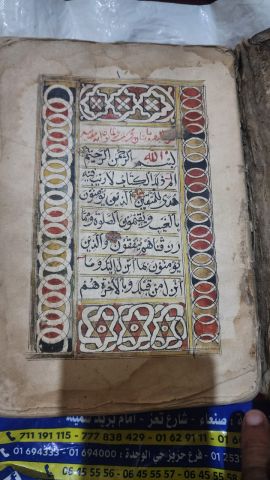 بسم الله الرحمن الرحيم
الم ذلك الكتاب لا ريب فيه
هدى للمتقين الذين يؤمنون
بالغيب ويقيمون الصلوة ومما
رزقناهم ينفقون والذين
يؤمنون بما انزل اليك وما
انزل من قبلك وبالاخرة هم
صنعاء - شارع تعز - امام بريد
711 191 115 - 777 838 429 - 01 62 91 11 - 01
01 694333 - 01 694000 : فرع حزيز حي الوحدة -
06 45 55 56 - 06 45 55 57